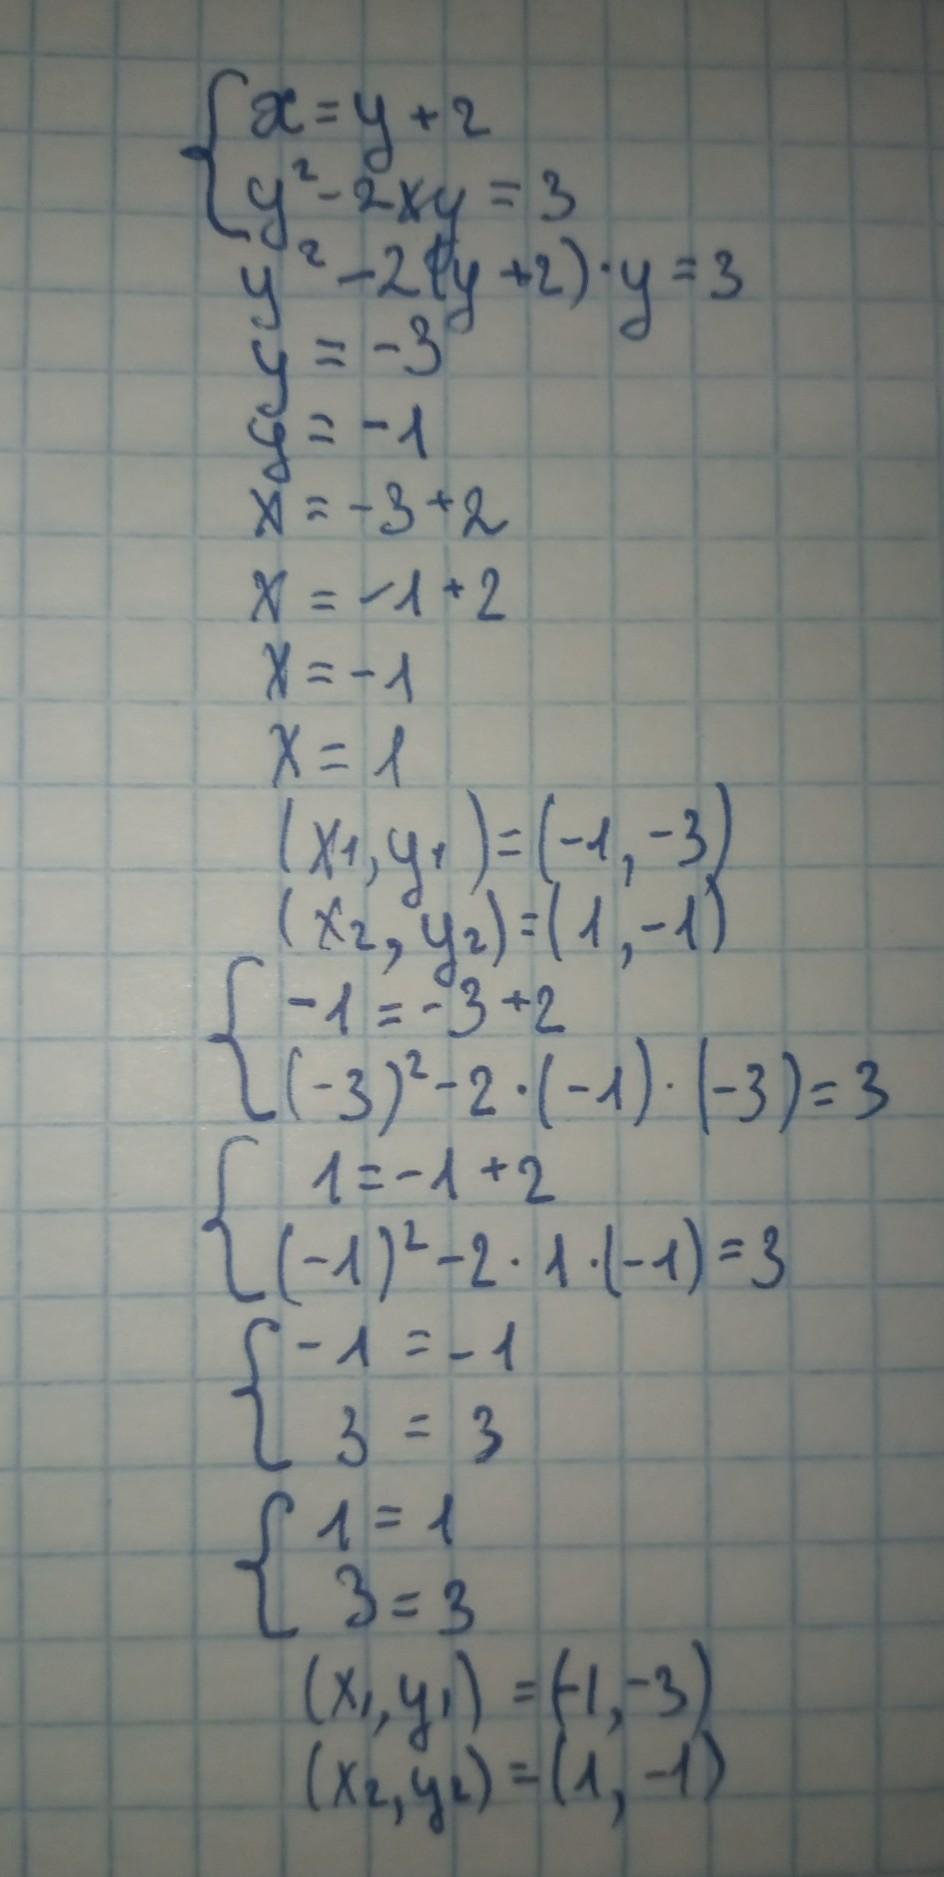 {x=y+2
y²-2xy=3
y²-2(y+2)·y=3
y=-3
y=-1
x=-3+2
x=-1+2
x=-1
x=1
(x₁,y₁)=(-1,-3)
(x₂,y₂)=(1,-1)
{-1=-3+2
(-3)²-2·(-1)·(-3)=3
{1=-1+2
(-1)²-2·1·(-1)=3
{-1=-1
3=3
{1=1
3=3
(x₁,y₁)=(-1,-3)
(x₂,y₂)=(1,-1)